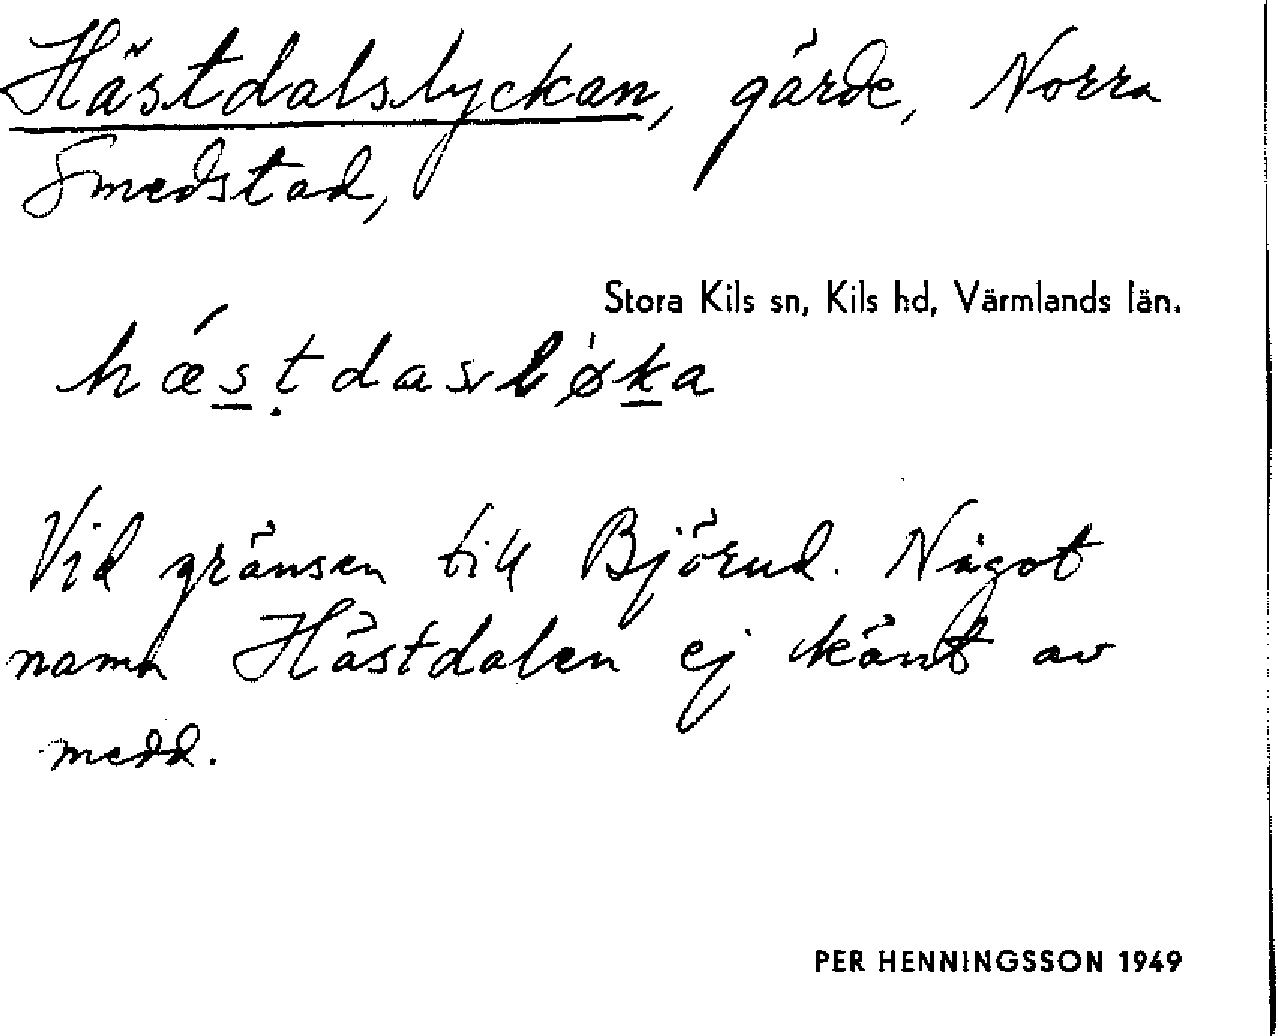 Hästdalslyckan, gärde, Norra
Smedstad,
Stora Kils sn, Kils hd, Värmlands län.
hǽs̲ṭdasvlø̍k̲a
Vid gränsen till Björud. Något
namn Hästdalen ej känt av
medd.
PER HENNINGSSON 1949